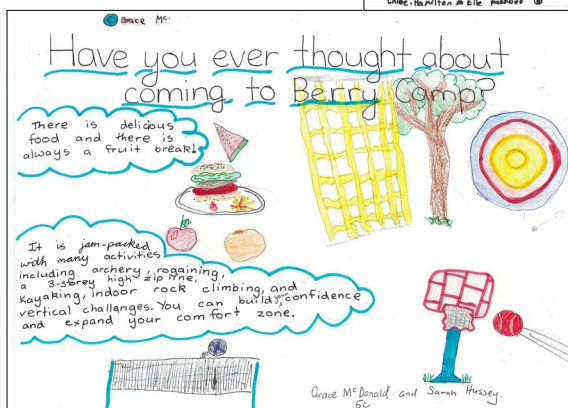 Chloe.Hamilton & Elle
Grace Mc.
Have you ever thought about
coming to Berry Camp?
There is delicious
food and there is
always a fruit break!
It is jam-packed
with many activities
including archery, rogaining,
a 3-storey high zip line,
Kayaking, indoor rock climbing, and
vertical challanges. You can build your confidence
and expand your comfort zone.
Grace McDonald and Sarah Hussey.
5C